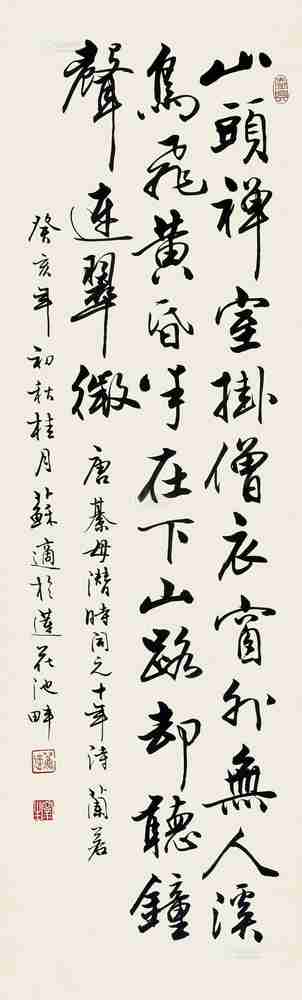 山頭禅室掛僧衣窗外無人溪
鳥飛黄昏半在下山路却聽鐘
聲連翠微
唐綦毋潛時開元十年詩蘭若
癸亥年初秋桂月蘇適於蓮花池畔